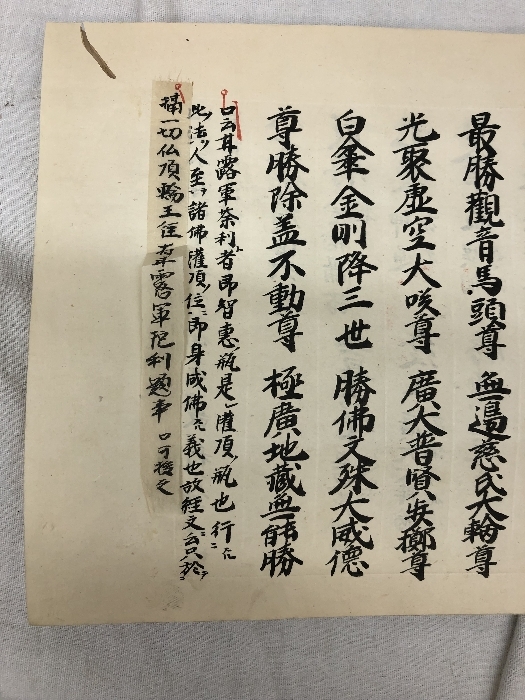 最勝觀音馬頭尊 無邊慈氏大輪尊
光聚虚空大咲尊 廣大普賢步擲尊
白傘金剛降三世 勝佛文殊大威德
尊勝除盖不動尊 極廣地藏無能勝
口云甘露軍荼利者即智惠瓶是灌頂瓶也行
此法人至諸佛灌頂位即身成佛義也故經文云只於
一切仏頂輪王住甘露軍陀利